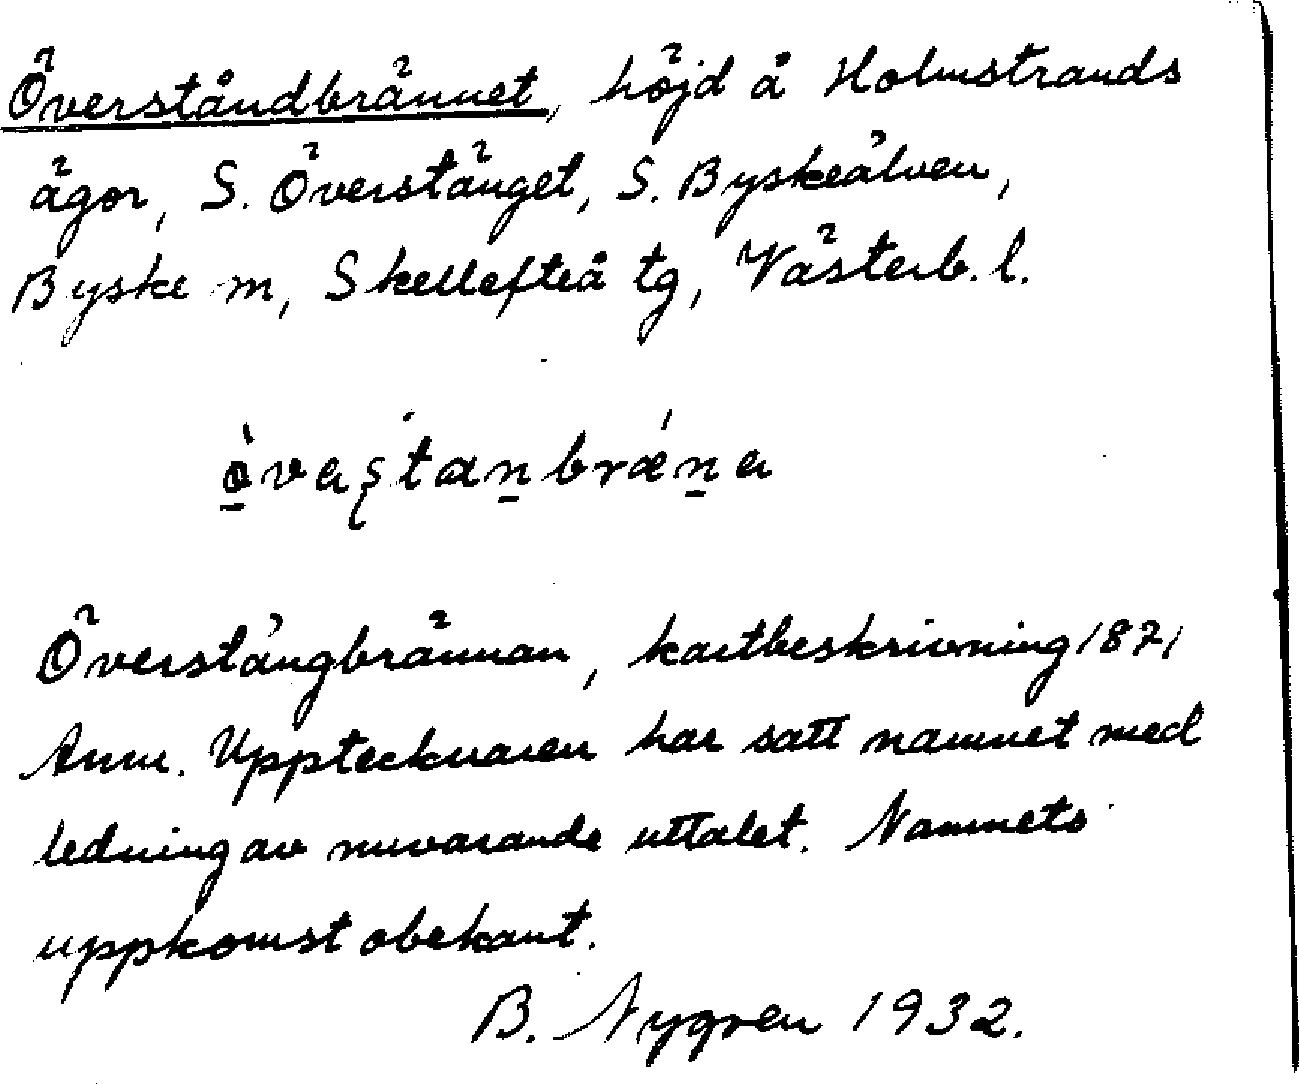 Överståndbrännet, höjd å Holmstrands
ägor, S. Överstänget, S. Byskeälven,
Byske sn, Skellefteå tg, Västerb. l.
ò̱vaʂtan̠brǽn̠a
Överstångbrännan, kartbeskrivning 1871
Anm. Upptecknaren har satt namnet med
ledning av nuvarande uttalet. Namnets
uppkomst obekant.
B. Nygren 1932.